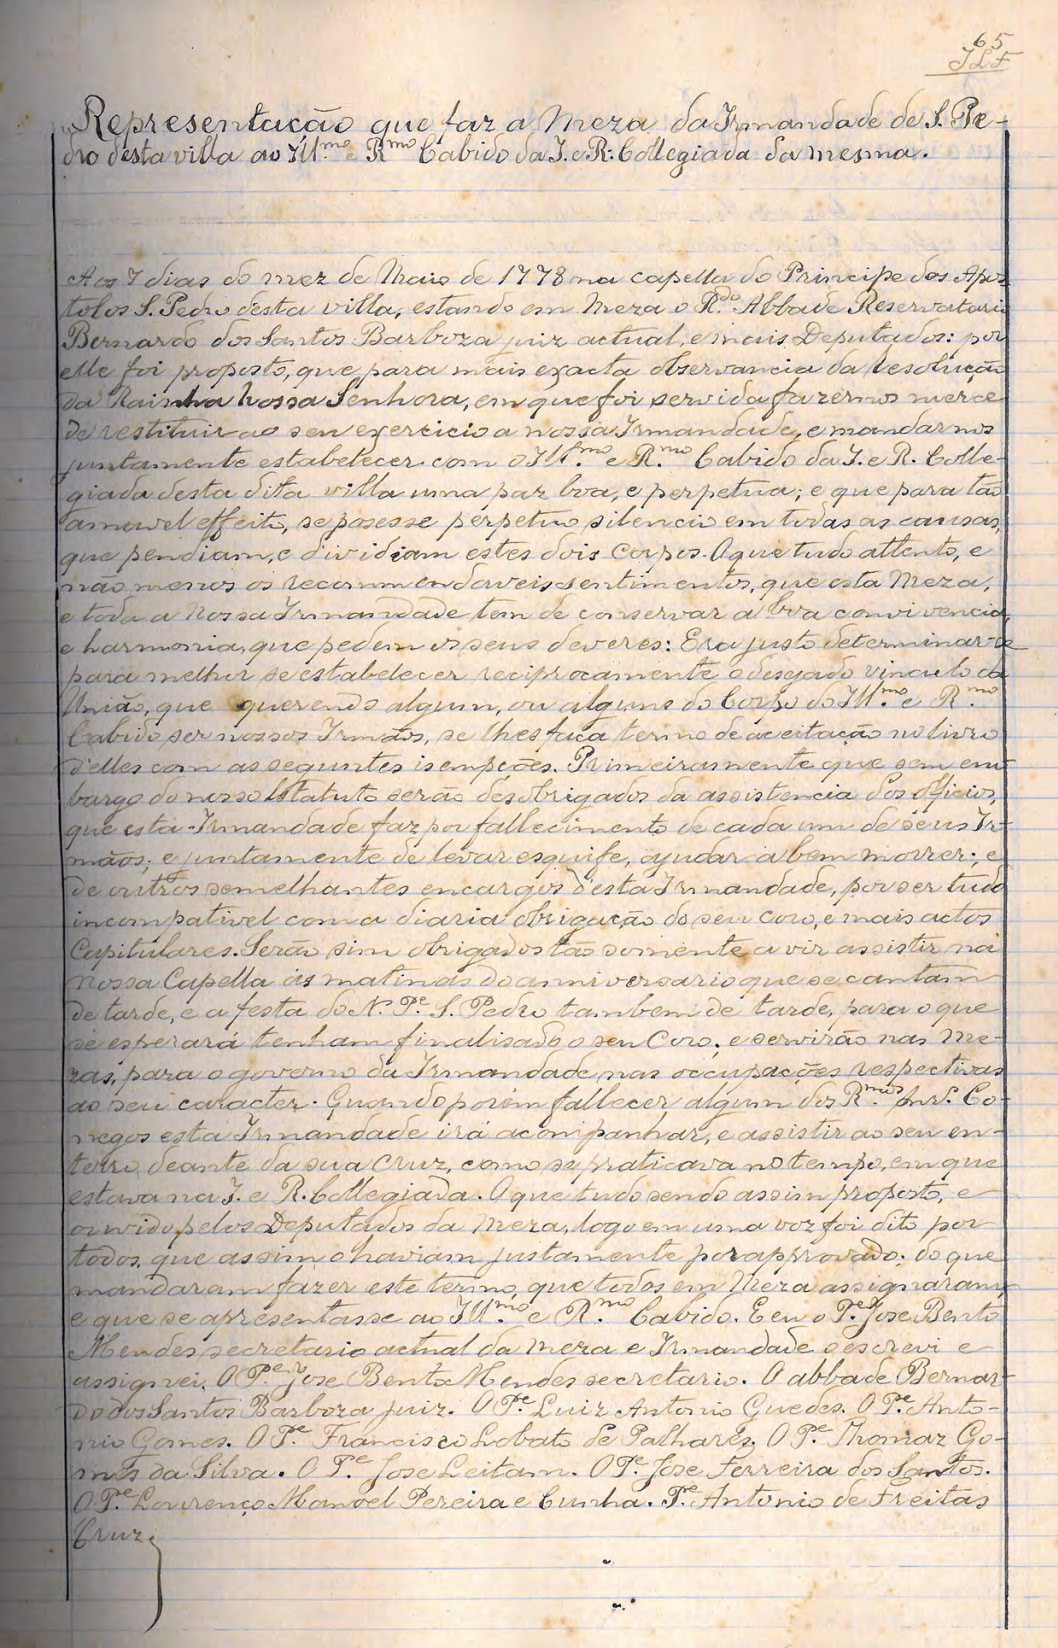 65
JLF
Representação que faz a Meza da Irmandade de S. Pe-
dro d'esta villa ao Ill.mo e R.mo Cabido da I. e R. Collegiada da mesma.
Aos 7 dias do mez de Maio de 1778 na capella do Principe dos Apos-
tolos S. Pedro d'esta villa, estando em Meza o R.do Abbade Reservatario
Bernardo dos Santos Barboza juiz actual, e mais Deputados: por
elle foi proposto, que para mais exacta observancia da Resolução
da Rainha Nossa Senhora, em que foi servida fazer-nos merce
de restituir ao seu exercicio a nossa Irmandade, e mandar nos
juntamente estabelecer com o Ill.mo e R.mo Cabido da I. e R. Colle-
giada desta dita villa uma paz boa, e perpetua; e que para tão
amavel effeito, se pozesse perpetuo silencio em todas as causas,
que pendiam, e dividiam estes dois Corpos. O que tudo attento, e
não menos os recommendaveis sentimentos, que esta Meza,
e toda a Nossa Irmandade tem de conservar a boa convivencia,
e harmonia, que pedem os seus deveres: Era justo determinar-se
para melhor se estabelecer reciprocamente o desejado vinculo da
União, que querendo algum, ou alguns do Corpo do Ill.mo e R.mo
Cabido ser nossos Irmãos, se lhes faça termo de aceitação no livro
d'elles com as seguintes isempções. Primeiramente que sem em-
bargo do nosso Statuto serão desobrigados da assistencia dos officios,
que esta Irmandade faz por fallecimento de cada um de seus Ir-
mãos; e juntamente de levar esquife, ajudar a bem morrer; e
de outros semelhantes encargos d'esta Irmandade, por ser tudo
incompativel com a diaria obrigação do seu coro, e mais actos
Capitulares. Serão sim obrigados tão somente a vir assistir na
nossa Capella ás matinas do anniversario que se cantam
de tarde, e a festa do N. P.e S. Pedro tambem de tarde, para o que
se esperará tenham finalisado o seu Coro; e servirão nas Me-
zas, para o governo da Irmandade nas occupações respectivas
ao seu caracter. Quando porém fallecer algum dos R.mos Snr.s Co-
negos esta Irmandade irá acompanhar, e assistir ao seu en-
terro deante da sua Cruz, como se praticava no tempo, em que
estava na I. e R. Collegiada. O que tudo sendo assim proposto, e
ouvido pelos Deputados da Meza, logo em uma voz foi dito por
todos, que assim o haviam justamente por approvado; do que
mandaram fazer este termo, que todos em Meza assignaram,
e que se apresentasse ao Ill.mo e R.mo Cabido. E eu o P.e Jose Bento
Mendes secretario actual da meza e Irmandade o escrevi e
assignei. O P.e Jose Bento Mendes secretario. O abbade Bernar-
do dos Santos Barboza juiz. O P.e Luiz Antonio Guedes. O P.e Anto-
nio Gomes. O P.e Francisco Lobato de Palhares. O P.e Thomaz Go-
mes da Silva. O P.e Jose Leitam. O P.e Jose Ferreira dos Santos.
O P.e Lourenço Manoel Pereira e Cunha. P.e Antonio de Freitas
Cruz.